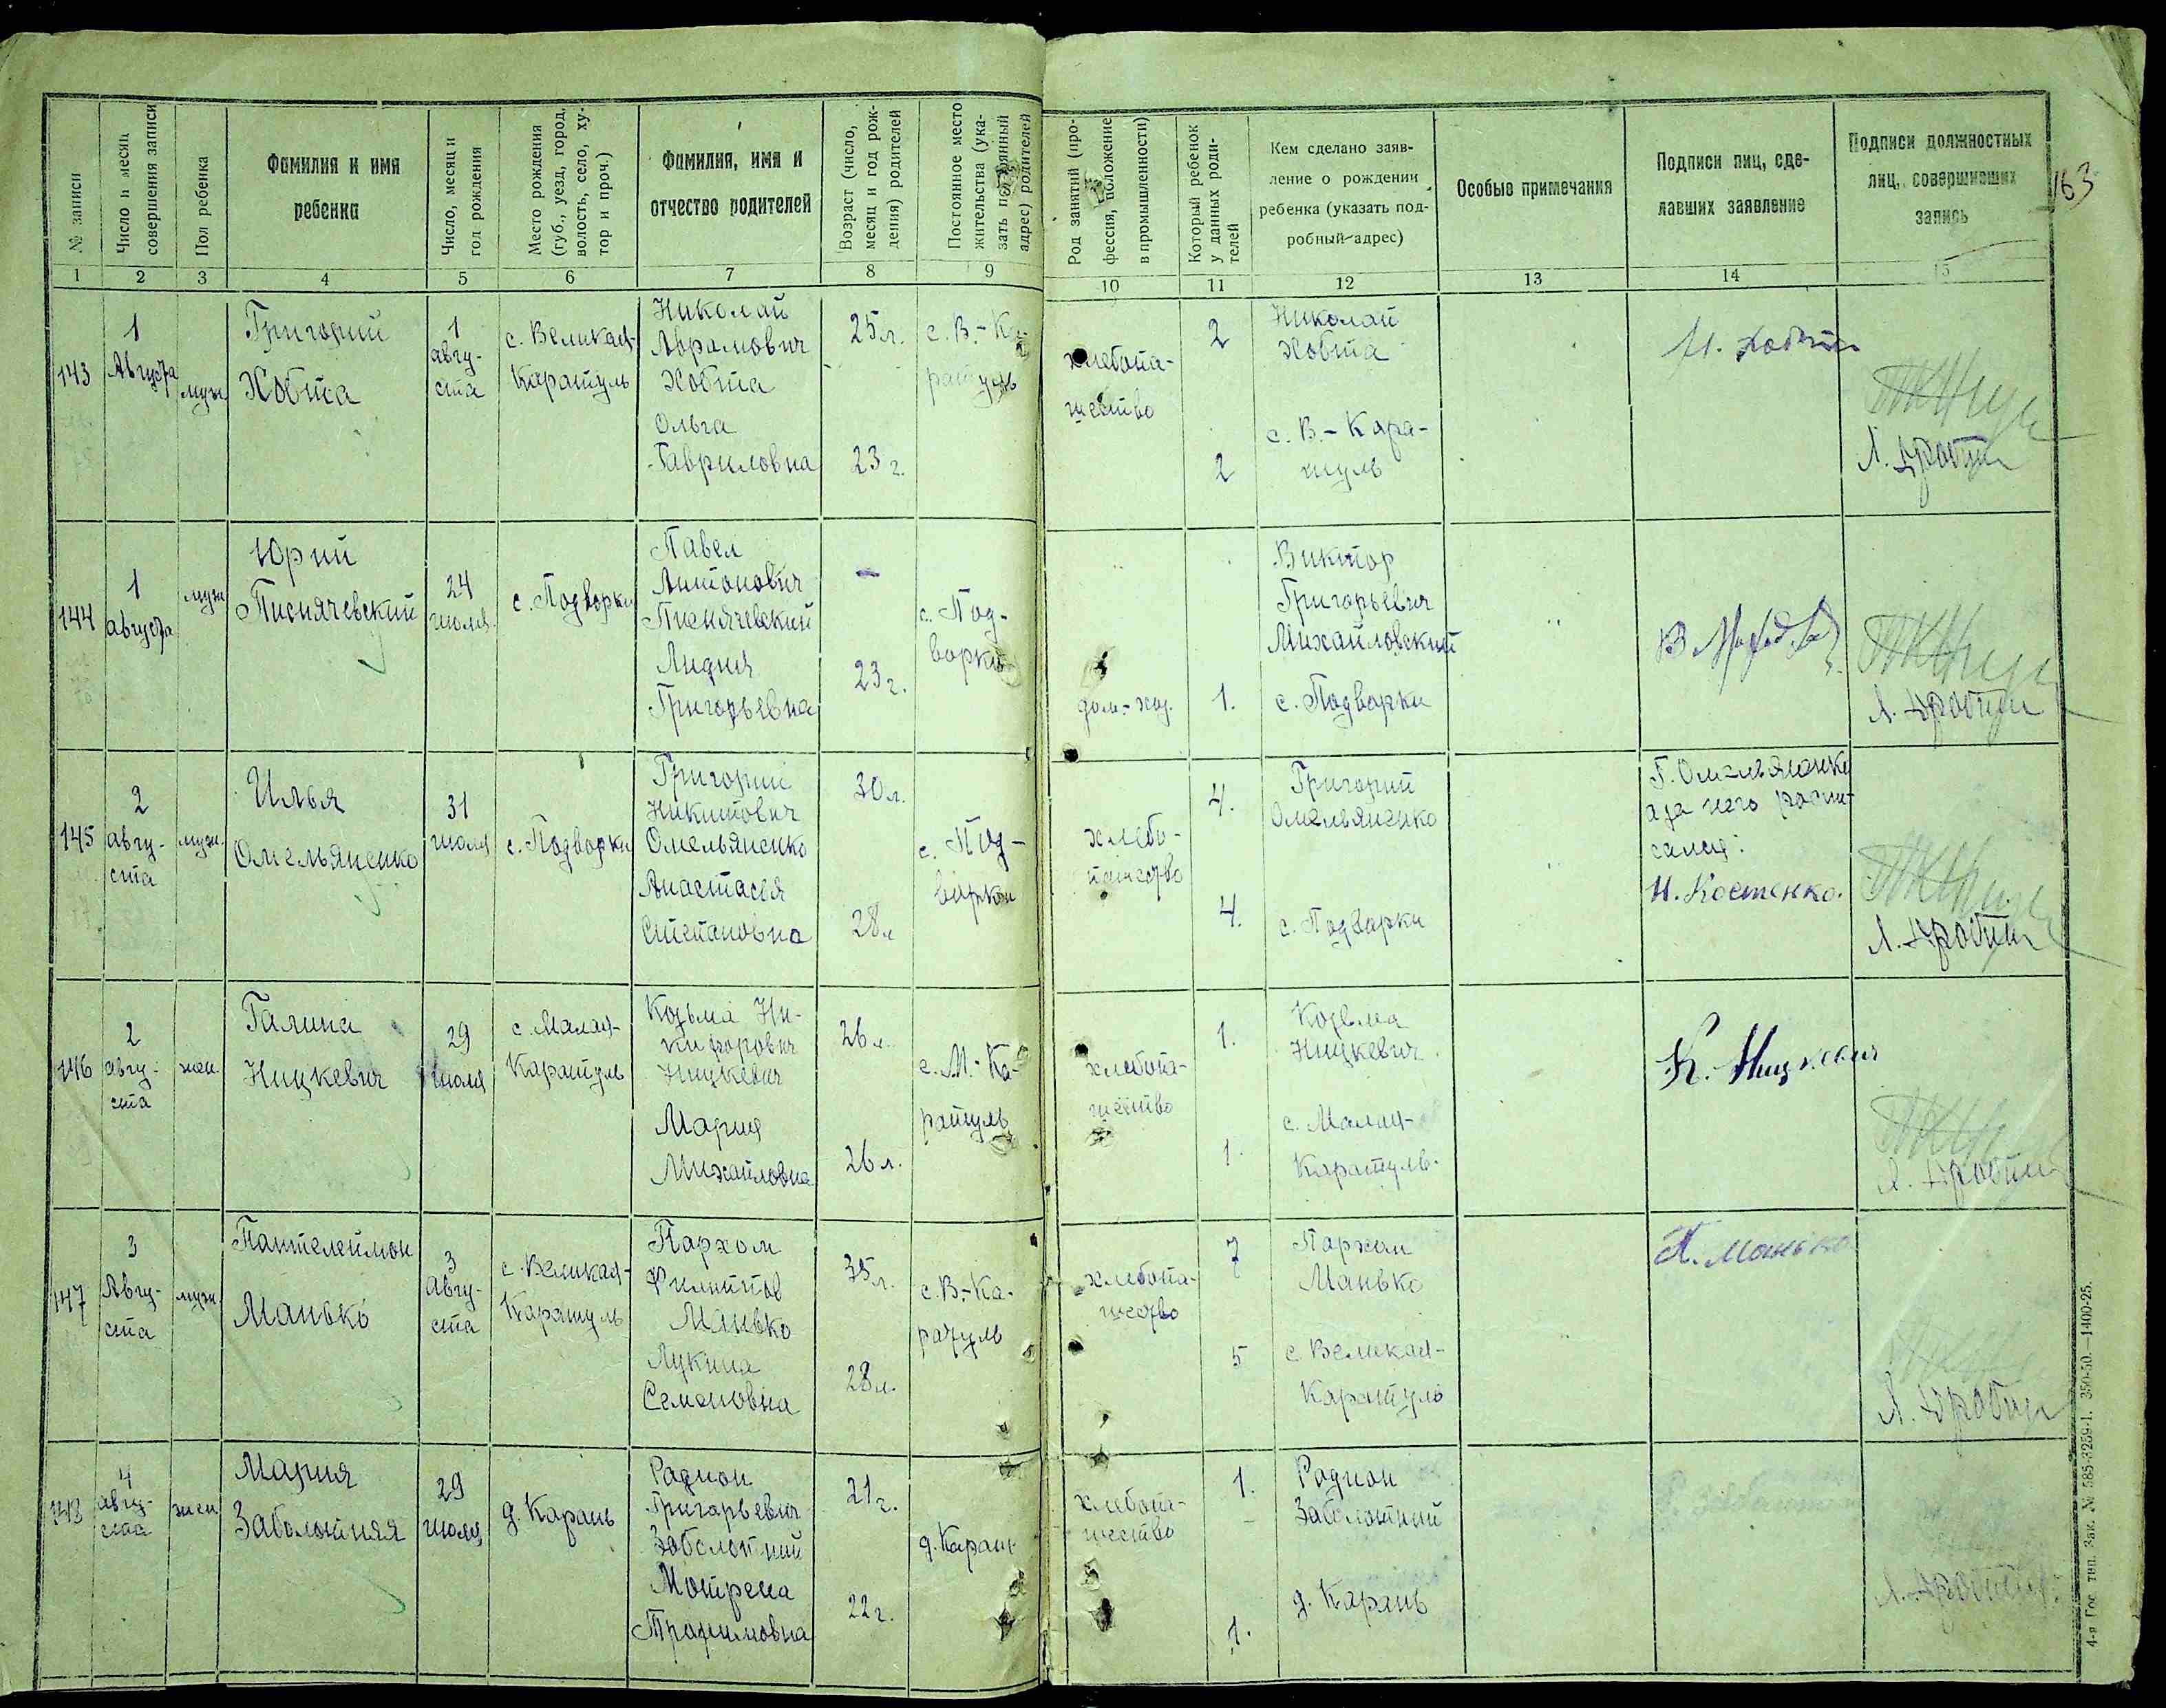 163
№ записи
Число и месяц
совершения записи
Пол ребенка
Фамилия и имя
ребенка
Число, месяц и
год рождения
Место рождения
(губ., уезд, город,
волость, село, ху-
тор и проч.)
Фамилия, имя и
отчество родителей
Возраст (число,
месяц и год рож-
дения) родителей
Постоянное место
жительства (ука-
зать
адрес) родителей
Род занятий (про-
фессия, положение
в промышленности)
Который ребенок
у данных роди-
телей
Кем сделано заяв-
ление о рождении
ребенка (указать под-
робный адрес)
Особые примечания
Подписи лиц, сде-
лавших заявление
Подписи должностных
лиц, совершивших
запись
1 2 3 4 5 6 7 8 9 10 11 12 13 14 15
143
1
Августа
муж
Григорий
Хобта
1
авгу-
ста
с. Великая-
Каратуль
Николай
Абрамович
Хобта
Ольга
Гавриловна
25 л.
23 г.
с. В.-Ка-
ратуль
хлебопа-
шество
2
2
Николай
Хобта
с. В.-Кара-
туль
Н. Хобта
144
1
августа
муж
Юрий
Писнячевский
24
июля
с. Подворки
Павел
Антонович
Писнячевский
Лидия
Григорьевна
—
23 г.
с. Под-
ворки
дом.-хоз.
1.
Виктор
Григорьевич
Михайловский
с. Подворки
145
2
авгу-
ста
муж.
Илья
Омельяненко
31
июля
с. Подворки
Григорий
Никитович
Омельяненко
Анастасия
Степановна
30 л.
28 л
с. Под-
ворки
хлебо-
пашество
4.
4.
Григорий
Омельяненко
с. Подварки
Г. Омельяненко
а за него распи-
сался:
Н. Костенко.
146
2
авгу-
ста
жен.
Галина
Ницкевич
29
июля
с. Малая-
Каратуль
Козьма Ни-
кифорович
Ницкевич
Мария
Михайловна
26 л.
26 л.
с. М.-Ка-
ратуль
хлебопа-
шество
1.
1.
Козьма
Ницкевич
с. Малая-
Каратуль.
К. Ницкевич
147
3
Авгу-
ста
муж.
Пантелеймон
Манько
3
Авгу-
ста
с. Великая-
Каратуль
Пархом
Филиппов
Манько
Лукина
Семеновна
35 л.
28 л.
с. В.-Ка-
ратуль
хлебопа-
шество
7
5
Пархом
Манько
с Великая-
Каратуль
П. Манько
4
авгу-
ста
жен.
Мария
Заболотняя
29
июля
д. Карань
Радион
Григорьевич
Заболотний
Мотрена
Трофимовна
21 г.
22 г.
д. Карань
хлебопа-
шество
1.
1.
Родион
Заболотний
д. Карань
4-я Гос. тип. Зак. № 585-3259-1. 350-50.—1400-25.